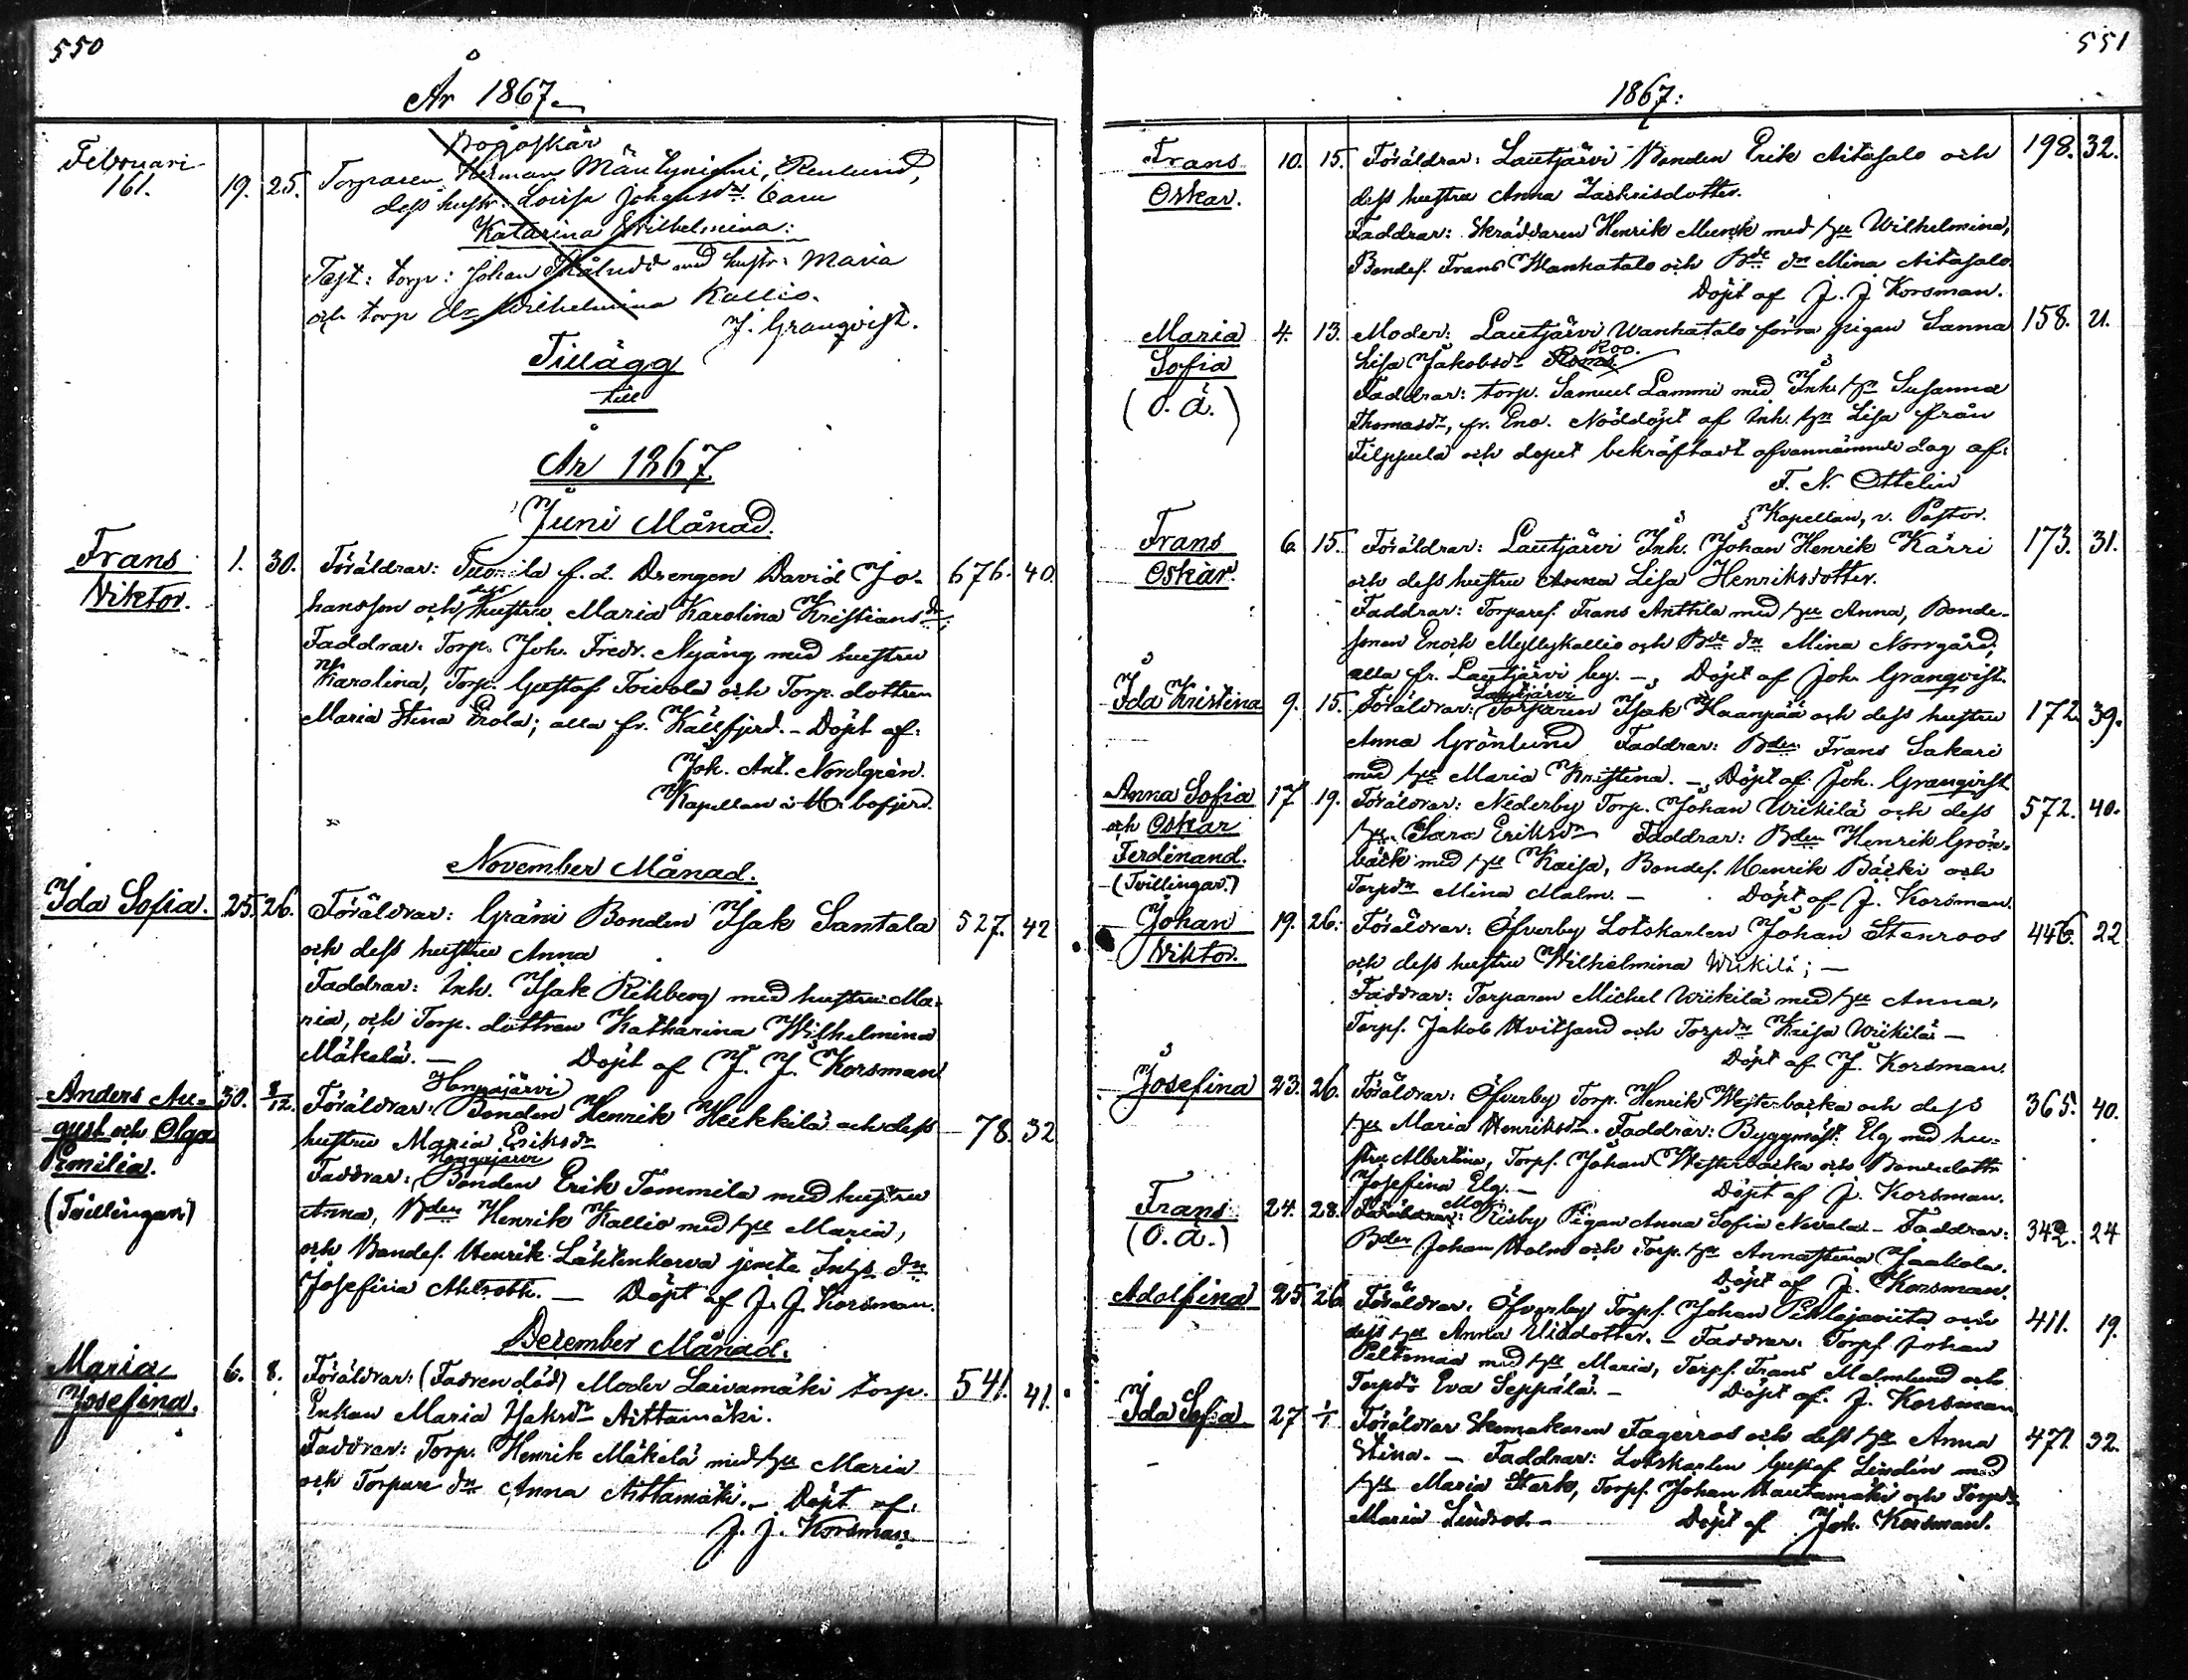 550
År 1867.
Februari
161.
19. 25.
Torparen Herman Mäntyniemi, Renlund,
dess hustr. Lovisa Johansdr. barn
Katarina Wilhelmina:
Test: torp: Johan med hustr. Maria
och torp dr Wilhelmina Kallio.
J. Granqvist.
Tillägg
till
År 1867
Juni Månad.
Frans Viktor. 1. 30. Föräldrar: Tuorila f.d. Drengen David Jo- 676. 40.
hansson och dess hustru Maria Karolina Kristiansdr;
Faddrar: Torp. Joh. Fredr. Nyäng med hustru
Karolina, Torp. Gustaf Toivola och Torp. dottren
Maria Stina Erola; alla fr. Kållfjerd. - Döpt af:
Joh. Ant. Nordgrén.
Kapellan i
November Månad.
Ida Sofia. 25. 26. Föräldrar: Gräsi Bonden Isak Santala 527. 42
och dess hustru Anna
Faddrar: Inh. Isak Rikberg med hustru Ma-
ria, och Torp. dottren Katharina Wilhelmina
Mäkelä. — Döpt af J. J. Korsman.
Anders Au- 30. 8/12. Föräldrar: Honkajärvi Bonden Henrik Heikkilä och dess 78. 32
gust och Olga hustru Maria Eriksdr
Emilia. Faddrar: Honkajärvi Bonden Erik Tommila med hustru
(Tvillingar) Anna, Bden Henrik Kallio med hu Maria,
och Bondes. Henrik Lähtenkorva jemte Inhs dr
Josefina Ahlroth. — Döpt af J. J. Korsman.
December Månad.
Maria 6. 8. Föräldrar: (Fadren död) Moder Laivamäki torp. 541. 41.
Josefina. Enkan Maria Isaksdr Aittamäki.
Faddrar: Torp. Henrik Mäkelä med hu Maria
och Torpare dr Anna Aittamäki. - Döpt af:
J. J. Korsman
551
1867:
Frans 10. 15. Föräldrar: Lautjärvi Bonden Erik Aitasalo och 198. 32.
Oskar. dess hustru Anna Zachrisdotter.
Faddrar: Skräddaren Henrik Munck med hu Wilhelmina,
Bondes. Frans Wanhatalo och Bde dr Mina Aitasalo.
Döpt af J. J. Korsman.
Maria 4. 13. Moder: Lautjärvi Wanhatalo förra pigan Sanna 158. 21.
Sofia Lisa Jakobsdr Roo.
(O. Ä.) Faddrar: torp. Samuel Lammi med Inh. hu Susanna
Thomasdr, fr. Eno. Nöddöpt af Inh. hu Lisa från
Filppula och dopet bekräftadt ofvannämnde dag af:
F. N. Ottelin
Kapellan, v. Pastor.
Frans 6. 15. Föräldrar: Lautjärvi Inh. Johan Henrik Kärri 173. 31.
Oskar. och dess hustru Anna Lisa Henriksdotter.
Faddrar: Torpares. Frans Anttila med hu Anna, Bonde-
sonen Enoch Myllykallio och Bde dr Mina Norrgård;
alla fr. Lautjärvi by. - Döpt af Joh. Granqvist.
Ida Kristina 9. 15. Föräldrar: Lautjärvi Torparen Isak Haanpää och dess hustru 172. 39.
Anna Grönlund Faddrar: Bden Frans Sakari
med hu Maria Kristina. - Döpt af: Joh. Granqvist
Anna Sofia 17 19. Föräldrar: Nederby Torp. Johan Wiikilä och dess 572. 40.
och Oskar hu. Sara Eriksdr Faddrar: Bden Henrik Grön-
Ferdinand. bäck med hu Kaisa, Bondes. Henrik Bäcki och
(Tvillingar.) Torpdr Mina Malm. - Döpt af J. Korsman.
Johan 19. 26. Föräldrar: Öfverby Lotskarlen Johan Stenroos 446. 22
Viktor. och dess hustru Wilhelmina Wiikilä; —
Faddrar: Torparen Michel Wiikilä med hu Anna,
Torps. Jakob Hvitsand och Torpdr Kaisa Wiikilä —
Döpt af J. Korsman.
Josefina 23. 26. Föräldrar: Öfverby Torp. Henrik Westerbacka och dess 365. 40.
hu Maria Henriksdr. Faddrar: Byggmäst. Elg med hu-
stru Albertina, Torps. Johan Westerbacka och Bondedottr
Josefina Elg. - Döpt af J. Korsman.
Frans 24. 28. Mod: Risby Pigan Anna Sofia Nevala - Faddrar: 342. 24
(O. Ä.) Bden Johan Holm och Torp. hu Annastina Jaakola.
Döpt af J. Korsman.
Adolfina 25. 26 Föräldrar: Öfverby Torps. Johan Pihlajaviita och 411. 19.
dess hu Anna Eliedotter. - Faddrar: Torps. Johan
Peltomaa med hu Maria, Torps. Frans Malmlund och
Torpdr Eva Seppälä. - Döpt af. J. Korsman
Ida Sofia 27 1/1 Föräldrar Skomakaren Fagerros och dess hu Anna 477. 32.
Stina. - Faddrar: Lotskarlen Gustaf Lindén med
hu Maria Stark, Torps. Johan Hautamäki och Torpdr
Maria Lindroos. - Döpt af Joh. Korsman.